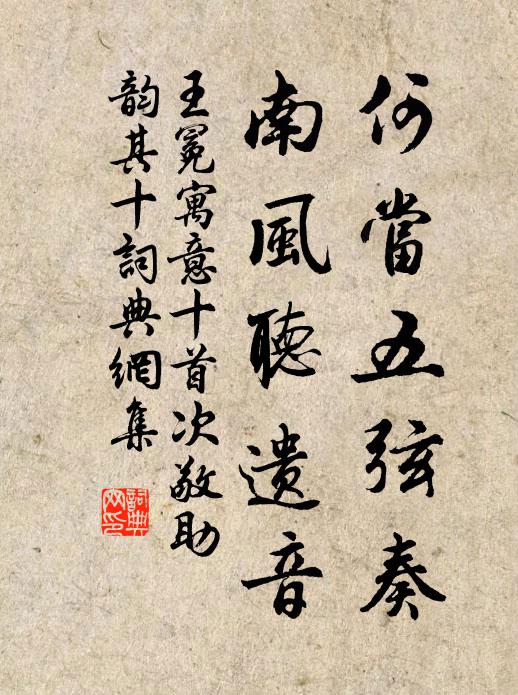 何當五弦奏
南風聽遺音
王冕寓意十首次敬助
韵其十詞典網集
詞典
网印